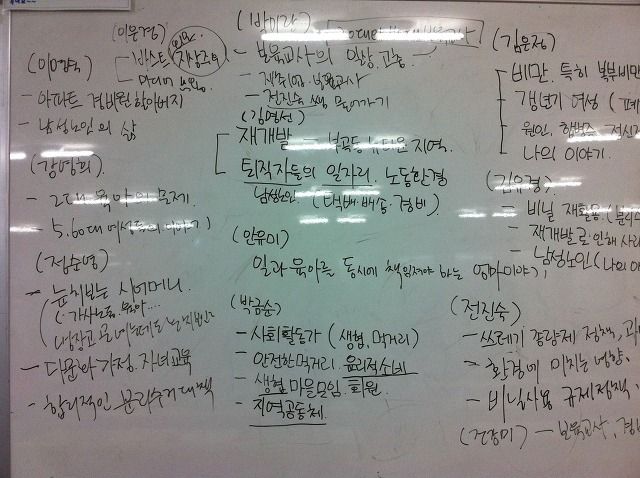 (이은경)
(이영숙)
- 아파트 경비원 할아버지
- 남성노인의 삶
(강명희)
- 2대 육아의 문제.
- 5.60대 여성들의 이야기)
(정순영)
- 눈치보는 시어머니.
- 다문화가정. 자녀교육
- 합리적인 분리수거 대책
(박미라)
- 보육교사의 일상, 고충.
- 전진숙 쌤 따라가기
(김영선)
재개발 - 북공동 뉴타운 지역.
퇴직자들의 일자리. 노동환경
남성노인 (택배 배송. 경비)
(안유미)
일과 육아를 동시에 책임져야 하는 엄마이야기
(박금순)
- 사회활동가 (생협, 먹거리)
- 안전한 먹거리. 윤리적소비
- 생협 마을모임. 회원
- 지역공동체
(김윤정)
비만. 특히 복부비만
갱년기 여성 (폐
원인. 합병증. 정신
나의 이야기.
(김유경)
- 비닐 재활용. (분리
- 재개발로 인해 사라
- 남성노인 (나의 아
(전진숙)
- 쓰레기 종량제 정책,
- 환경에 미치는 영향.
- 비닐사용 규제정책
(건강미) - 보육교사, 경비